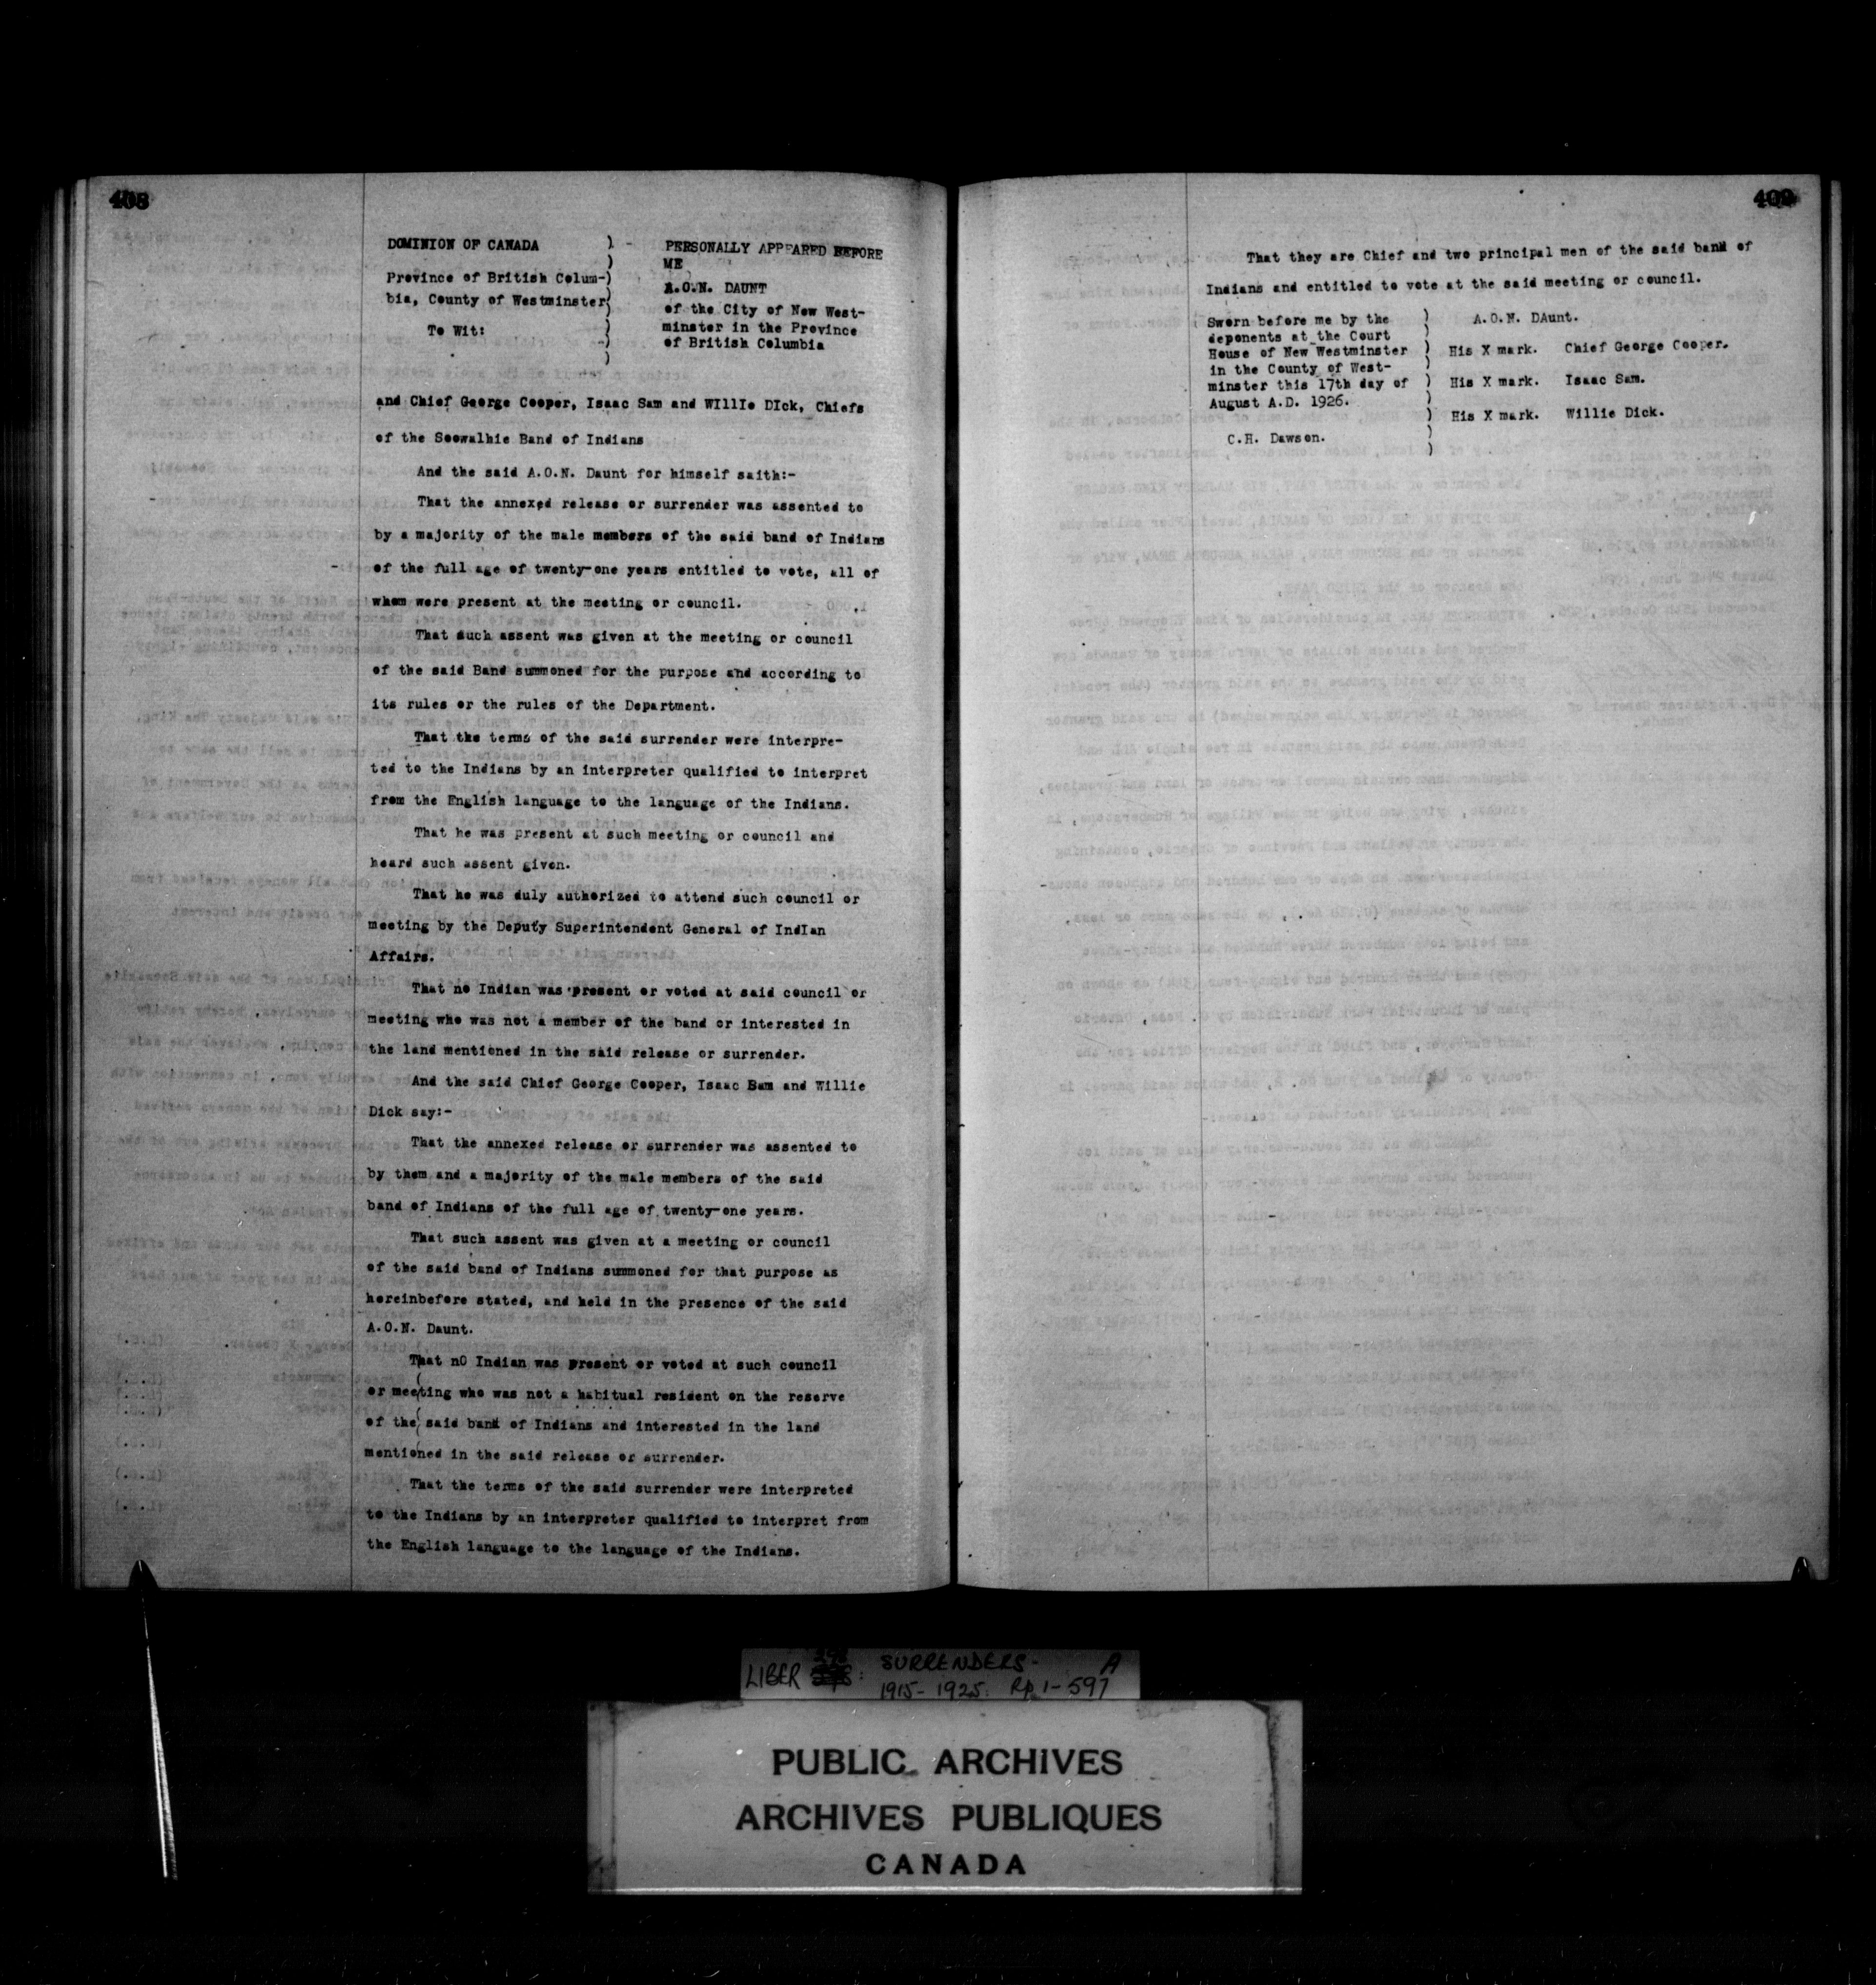 408
DOMINION OF CANADA ) - PERSONALLY APPEARED BEFORE
) ME
Province of British Colum-) A.O.N. DAUNT
bia, County of Westminster( of the City of New West-
To Wit: ) minster in the Province
) of British Columbia
)
and Chief George Cooper, Isaac Sam and WIllIe DIck, Chiefs
of the Soowalhie Band of Indians
And the said A.O.N. Daunt for himself saith:-
That the annexed release or surrender was assented to
by a majority of the male members of the said band of Indians
of the full age of twenty-one years entitled to vote, all of
whom were present at the meeting or council.
That such assent was given at the meeting or council
of the said Band summoned for the purpose and according to
its rules or the rules of the Department.
That the terms of the said surrender were interpre-
ted to the Indians by an interpreter qualified to interpret
from the English language to the language of the Indians.
That he was present at such meeting or council and
heard such assent given.
That he was duly authorized to attend such council or
meeting by the Deputy Superintendent General of IndIan
Affairs.
That no Indian was present or voted at said council or
meeting who was not a member of the band or interested in
the land mentioned in the said release or surrender.
And the said Chief George Cooper, Isaac Bam and Willie
Dick say:-
That the annexed release or surrender was assented to
by them and a majority of the male members of the said
band of Indians of the full age of twenty-one years.
That such assent was given at a meeting or council
of the said band of Indians summoned for that purpose as
hereinbefore stated, and held in the presence of the said
A.O.N. Daunt.
That nO Indian was present or voted at such council
or meeting who was not a habitual resident on the reserve
of the said band of Indians and interested in the land
mentioned in the said release or surrender.
That the terms of the said surrender were interpreted
to the Indians by an interpreter qualified to interpret from
the English language to the language of the Indians.
409
That they are Chief and two principal men of the said band of
Indians and entitled to vote at the said meeting or council.
Sworn before me by the ) A.O.N. DAunt.
deponents at the Court )
House of New Westminster ) His X mark. Chief George Cooper.
in the County of West- )
minster this 17th day of ) His X mark. Isaac Sam.
August A.D. 1926. )
) His X mark. Willie Dick.
C.H. Dawson. )
)
LIBER : SURRENDERS - A
1915-1925: Pp 1-597
PUBLIC ARCHIVES
ARCHIVES PUBLIQUES
CANADA